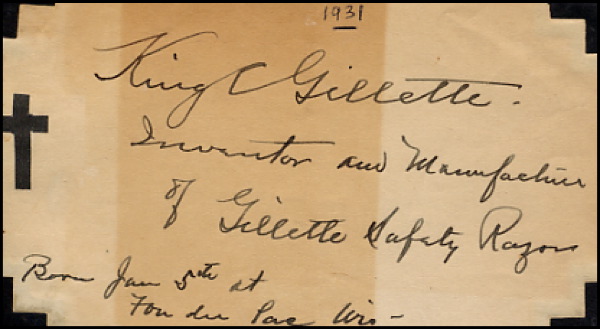 1931
King C Gillette.
Inventor and Manufacturer
of Gillette Safety Razors
Born Jan 5th at
Fon du Lac Wis -